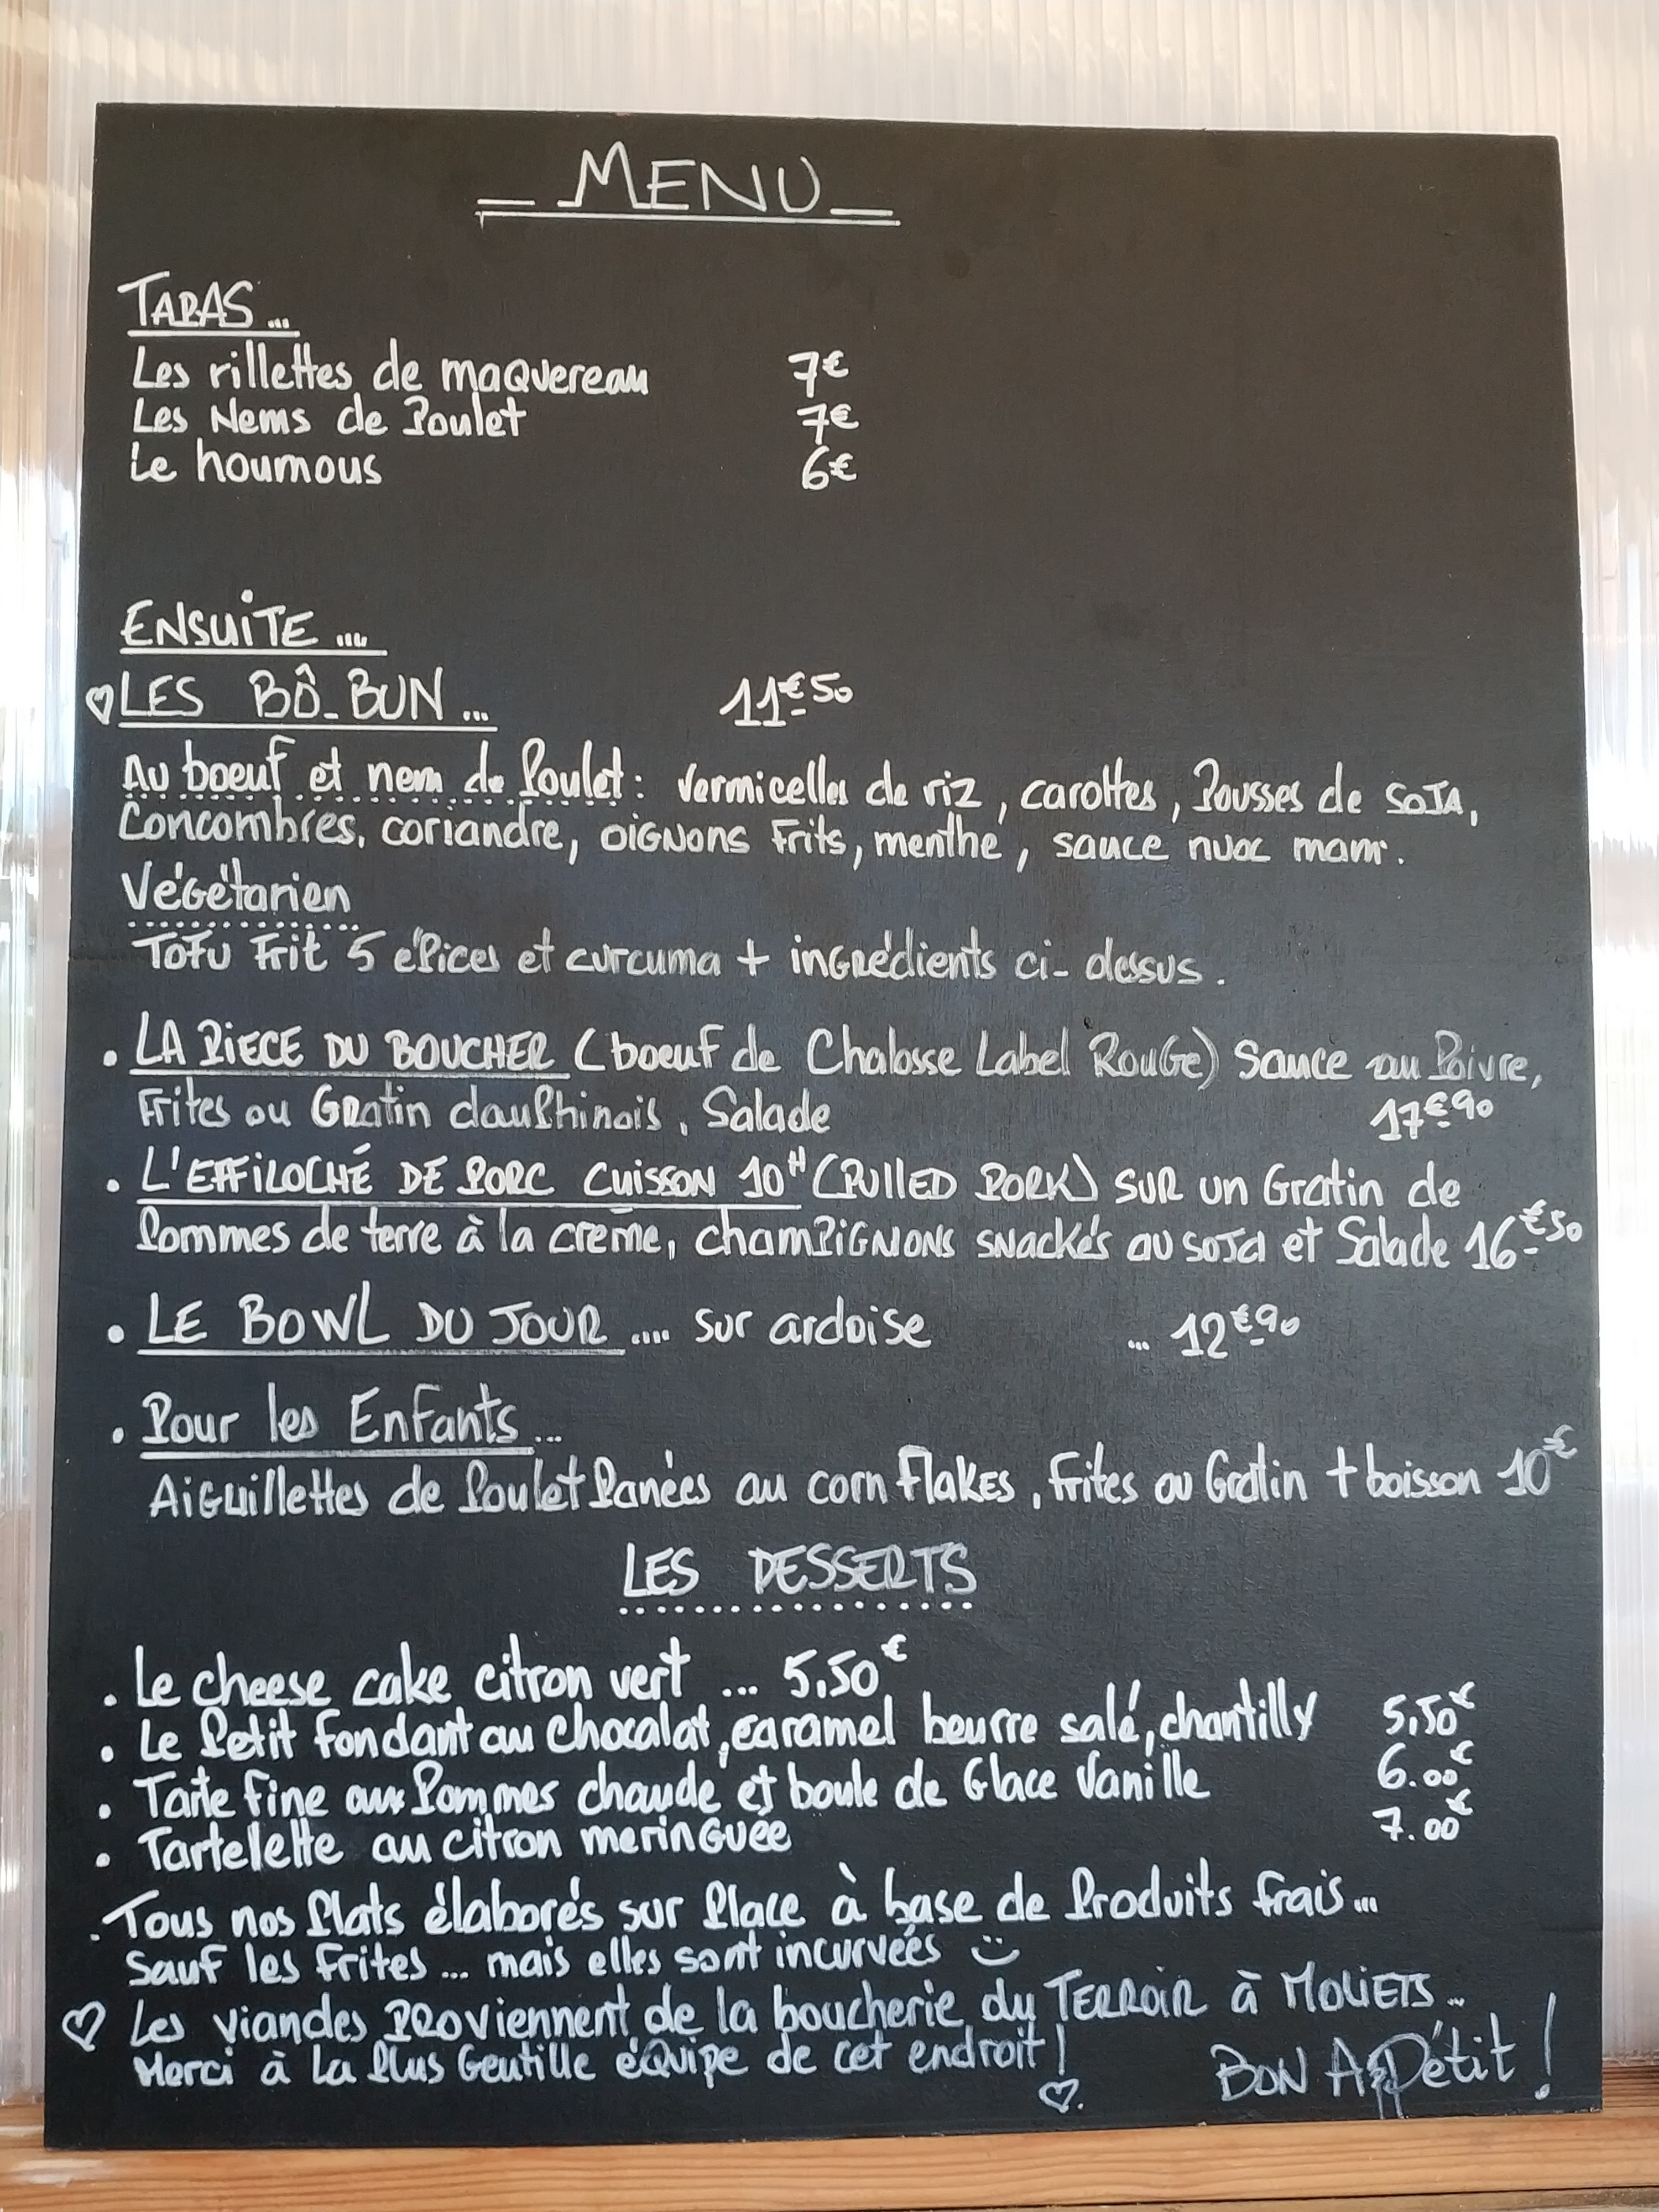 MENU
TAPAS...
Les rillettes de maquereau 7€
Les Nems de Poulet 7€
Le houmous 6€
ENSUITE ....
LES BÔ-BUN ... 11€50
Au boeuf et nem de Poulet : vermicelles de riz, carottes, Pousses de soja,
Concombres, coriandre, oignons Frits, menthe, sauce nuoc mam.
Végétarien
Tofu Frit 5 épices et curcuma + ingrédients ci-dessus.
. LA PIECE DU BOUCHER (boeuf de Chalosse Label Rouge) Sauce au Poivre,
Frites ou Gratin dauphinois, Salade 17€90
. L'EFFILOCHÉ DE PORC CUISSON 10H (PULLED PORK) SUR un Gratin de
Pommes de terre à la crème, champignons snackés au soja et Salade 16€50
. LE BOWL DU JOUR .... sur ardoise ... 12€90
. Pour les Enfants...
Aiguillettes de Poulet Panées au corn flakes, frites ou Gratin + boisson 10€
LES DESSERTS
. Le cheese cake citron vert ... 5,50€
. Le Petit fondant au chocolat, caramel beurre salé, chantilly 5,50€
. Tarte fine aux Pommes chaude et boule de Glace Vanille 6.00€
. Tartelette au citron meringuée 7.00€
. Tous nos Plats élaborés sur Place à base de Produits frais...
Sauf les Frites ... mais elles sont incurvées :)
♡ Les viandes PROviennent de la boucherie du TERROIR à MOLIETS...
Merci à La Plus Gentille équipe de cet endroit ! ♡.
BON APPétit !